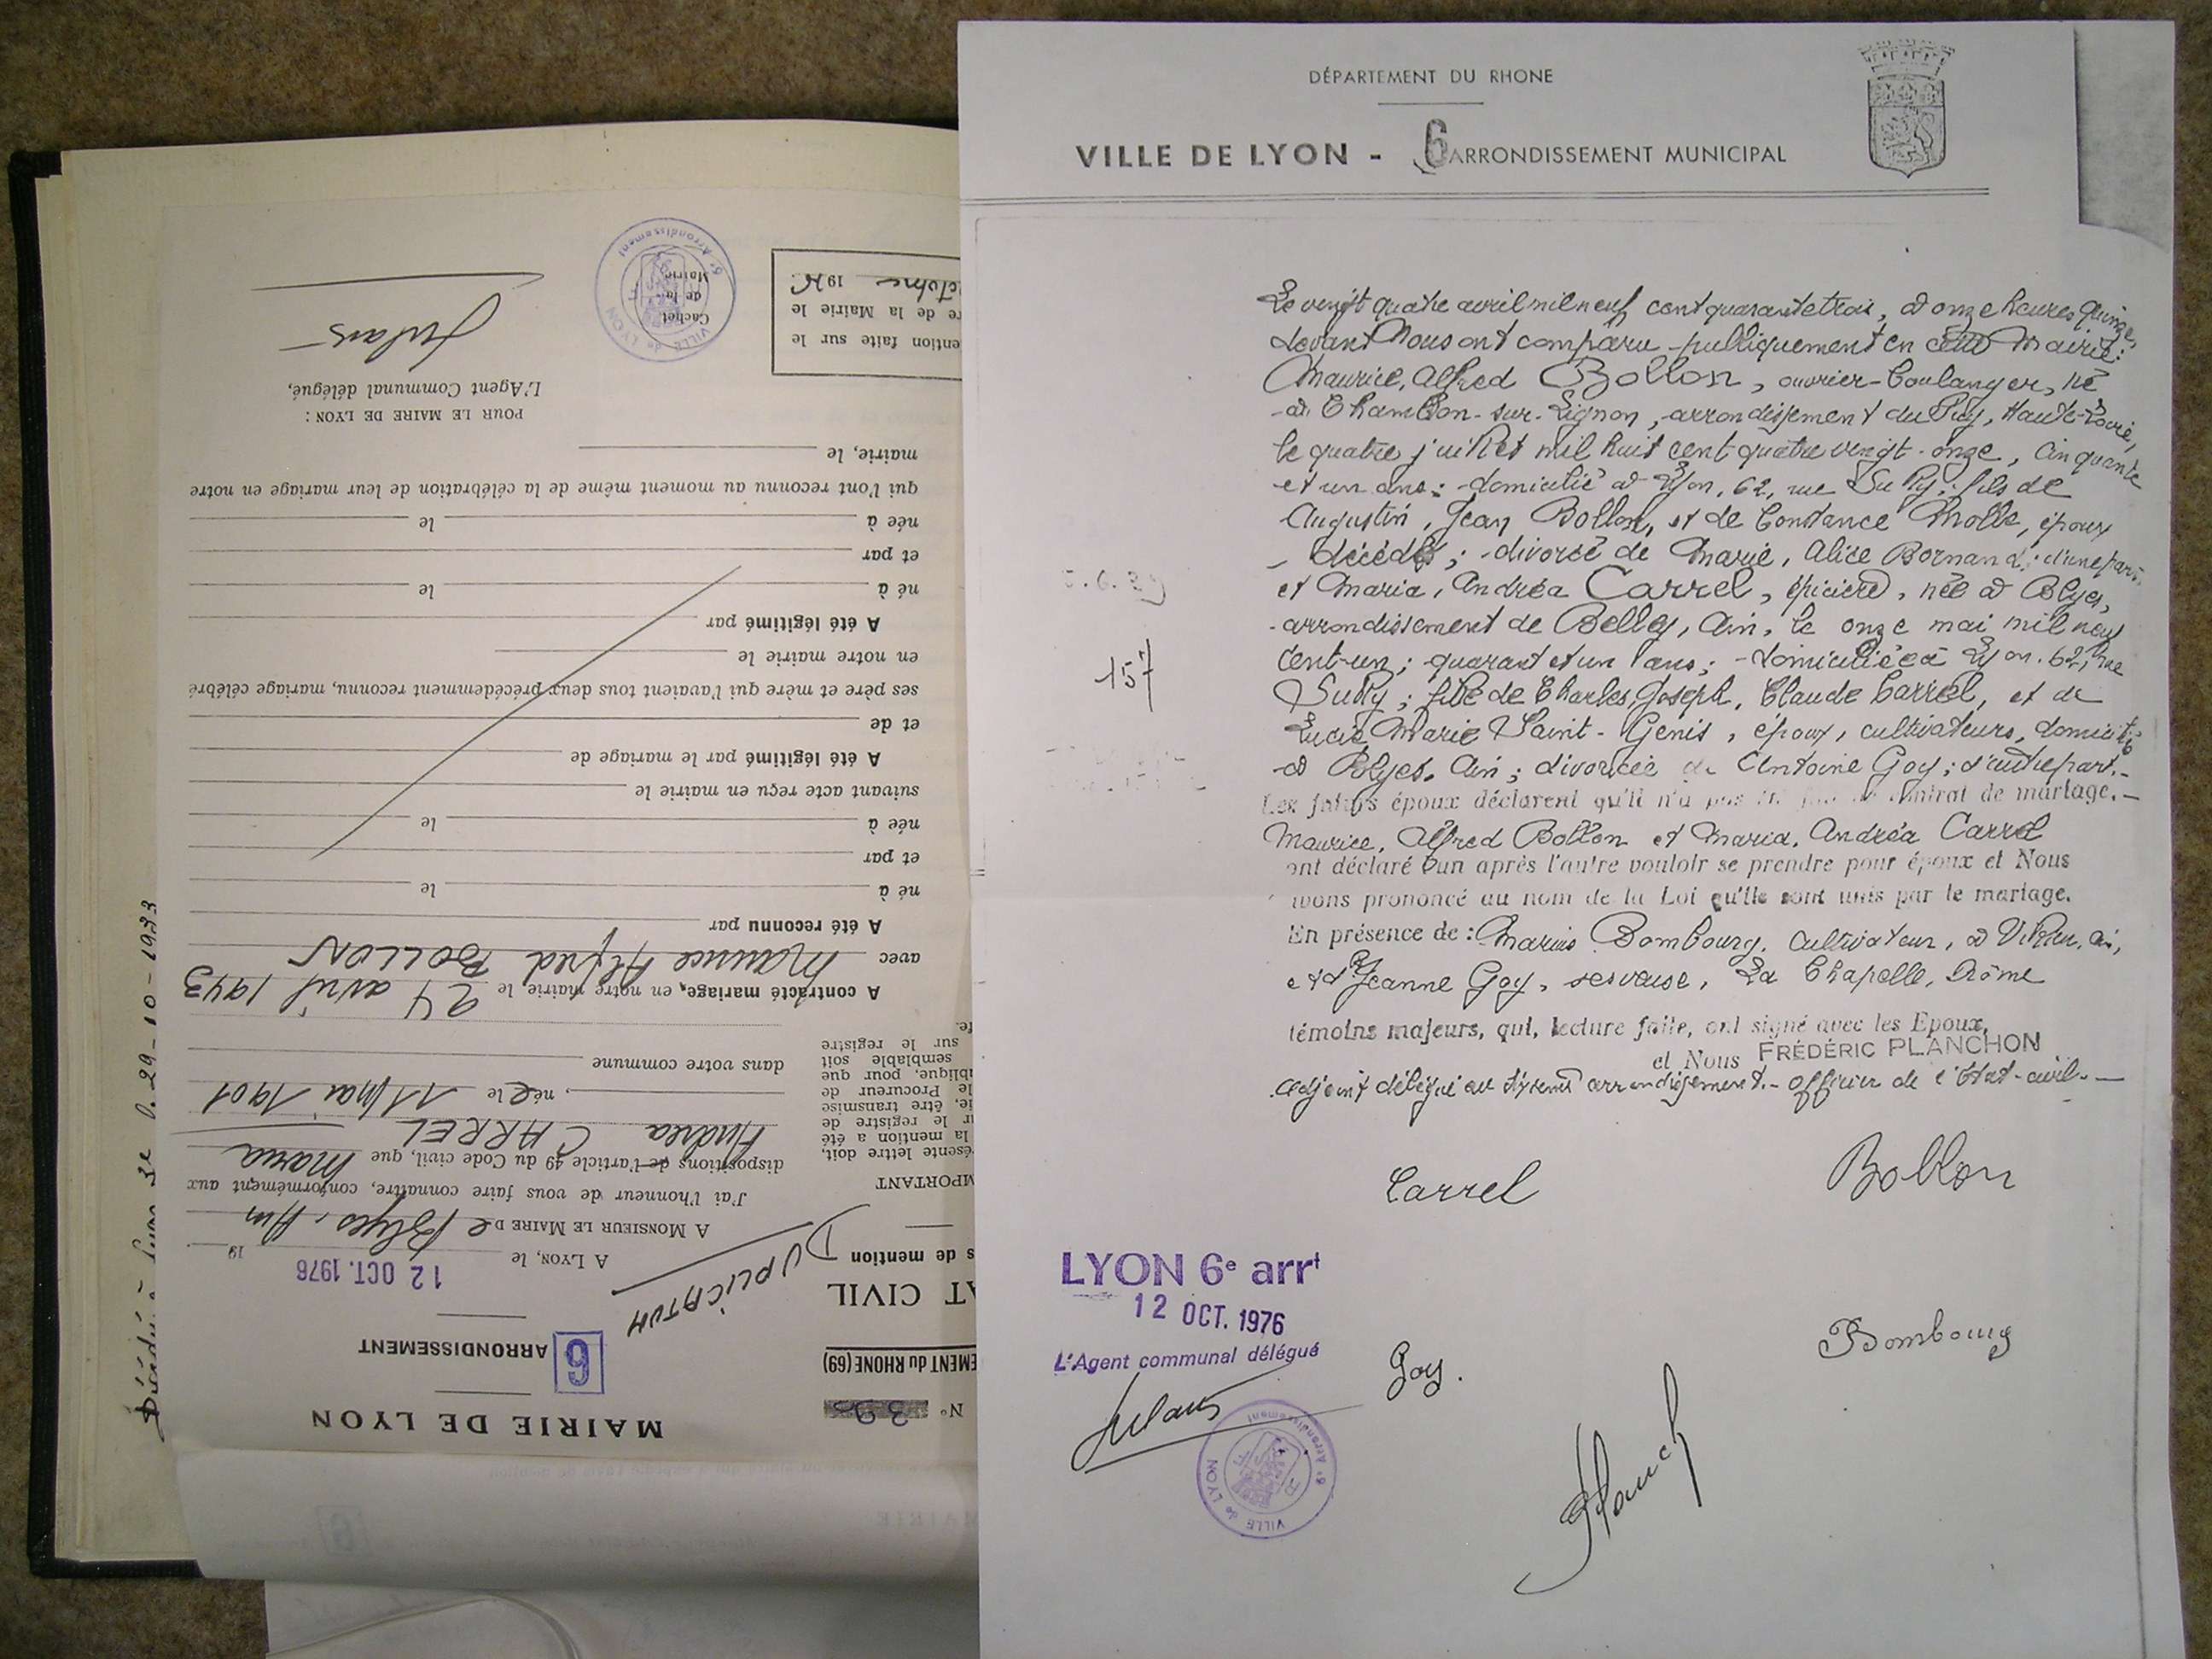 DÉPARTEMENT DU RHONE
VILLE DE LYON - 6 ARRONDISSEMENT MUNICIPAL
Le vingt quatre avril mil neuf cent quarante trois, à onze heures quinze,
devant Nous ont comparu publiquement en cette Mairie:
Maurice, Alfred Bollon, ouvrier-boulanger, né
à Chambon-sur-Lignon, arrondissement du Puy, Haute-Loire,
le quatre juillet mil huit cent quatre vingt-onze, cinquante
et un ans; domicilié à Lyon, 62, rue Sully; fils de
Augustin, Jean Bollon, et de Constance Molle, époux
décédés; divorcé de Marie, Alice Bornand; d'une part.
et Maria, Andréa Carrel, épicière, née à Blyes,
arrondissement de Belley, Ain, le onze mai mil neuf
cent-un; quarante et un ans; domiciliée à Lyon. 62, rue
Sully; fille de Charles, Joseph, Claude Carrel, et de
Lucie, Marie Saint-Genis, époux, cultivateurs, domiciliés
à Blyes, Ain; divorcée de Antoine Goy; d'autre part.-
Les futurs époux déclarent qu'il n'a pas été fait de contrat de mariage.-
Maurice, Alfred Bollon et Maria, Andréa Carrel
ont déclaré l'un après l'autre vouloir se prendre pour époux et Nous
avons prononcé au nom de la Loi qu'ils sont unis par le mariage.
En présence de: Marius Bombourg, cultivateur, à
et d Jeanne Goy, serveuse, La Chapelle, Drôme
témoins majeurs, qui, lecture faite, ont signé avec les Epoux,
et Nous FRÉDÉRIC PLANCHON
adjoint délégué au sixième arrondissement.- officier de l'Etat-civil.-
157
Carrel
Bollon
LYON 6e arrt
12 OCT. 1976
L'Agent communal délégué
Goy.
Bombourg
VILLE de LYON
6e Arrondissement
MAIRIE DE LYON
N° 32
6 ARRONDISSEMENT
EMENT DU RHONE (69)
AT CIVIL
s de mention
DUPLICATUM
12 OCT. 1976
A LYON, le 19
A MONSIEUR LE MAIRE De Blyes. Ain
J'ai l'honneur de vous faire connaître, conformément aux
dispositions de l'article 49 du Code civil, que Maria
Andrea CARREL
, née le 11 Mai 1901
dans votre commune
A contracté mariage, en notre mairie, le 24 avril 1943
avec Maurice Alfred BOLLON
A été reconnu par
né à le
et par
née à le
suivant acte reçu en mairie le
A été légitimé par le mariage de
et de
ses père et mère qui l'avaient tous deux précédemment reconnu, mariage célébré
en notre mairie le
A été légitimé par
né à le
et par
née à le
qui l'ont reconnu au moment même de la célébration de leur mariage en notre
mairie, le
POUR LE MAIRE DE LYON :
L'Agent Communal délégué,
MPORTANT
ésente lettre doit,
la mention a été
ur le registre de
ie, être transmise
le Procureur de
blique, pour que
semblable soit
sur le registre
fe.
ention faite sur le
re de la Mairie le
ctobre 1976
Cachet
de la
Mairie
VILLE de LYON
6e Arrondissement
29-10-1933